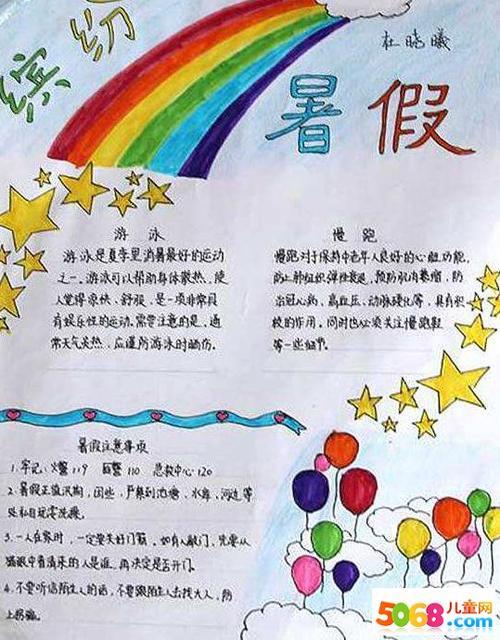 缤纷
杜晓曦
暑假
游泳
游泳是夏季里消暑最好的运动
之一。游泳可以帮助身体散热,使
人觉得凉快、舒服,是一项非常具
有娱乐性的运动。需要注意的是,通
常天气炎热,应谨防游泳时晒伤。
慢跑
慢跑对于保持中老年人良好的心脏功能,
防止肺组织弹性衰退,预防肌肉萎缩,防
治冠心病,高血压、动脉硬化等,具有积
极的作用。同时也必须关注慢跑鞋
等一些细节。
暑假注意事项
1.牢记:火警119 匪警110 急救中心120
2.暑假正值汛期,因此,严禁到池塘,水库,河边等
处私自玩耍洗澡。
3.一人在家时,一定要关好门窗。如有人敲门,先要从
猫眼中看清来的人是谁,再决定是否开门。
4.不要听信陌生人的话,不要跟陌生人去找大人,防
上拐骗。
5068儿童网
.com